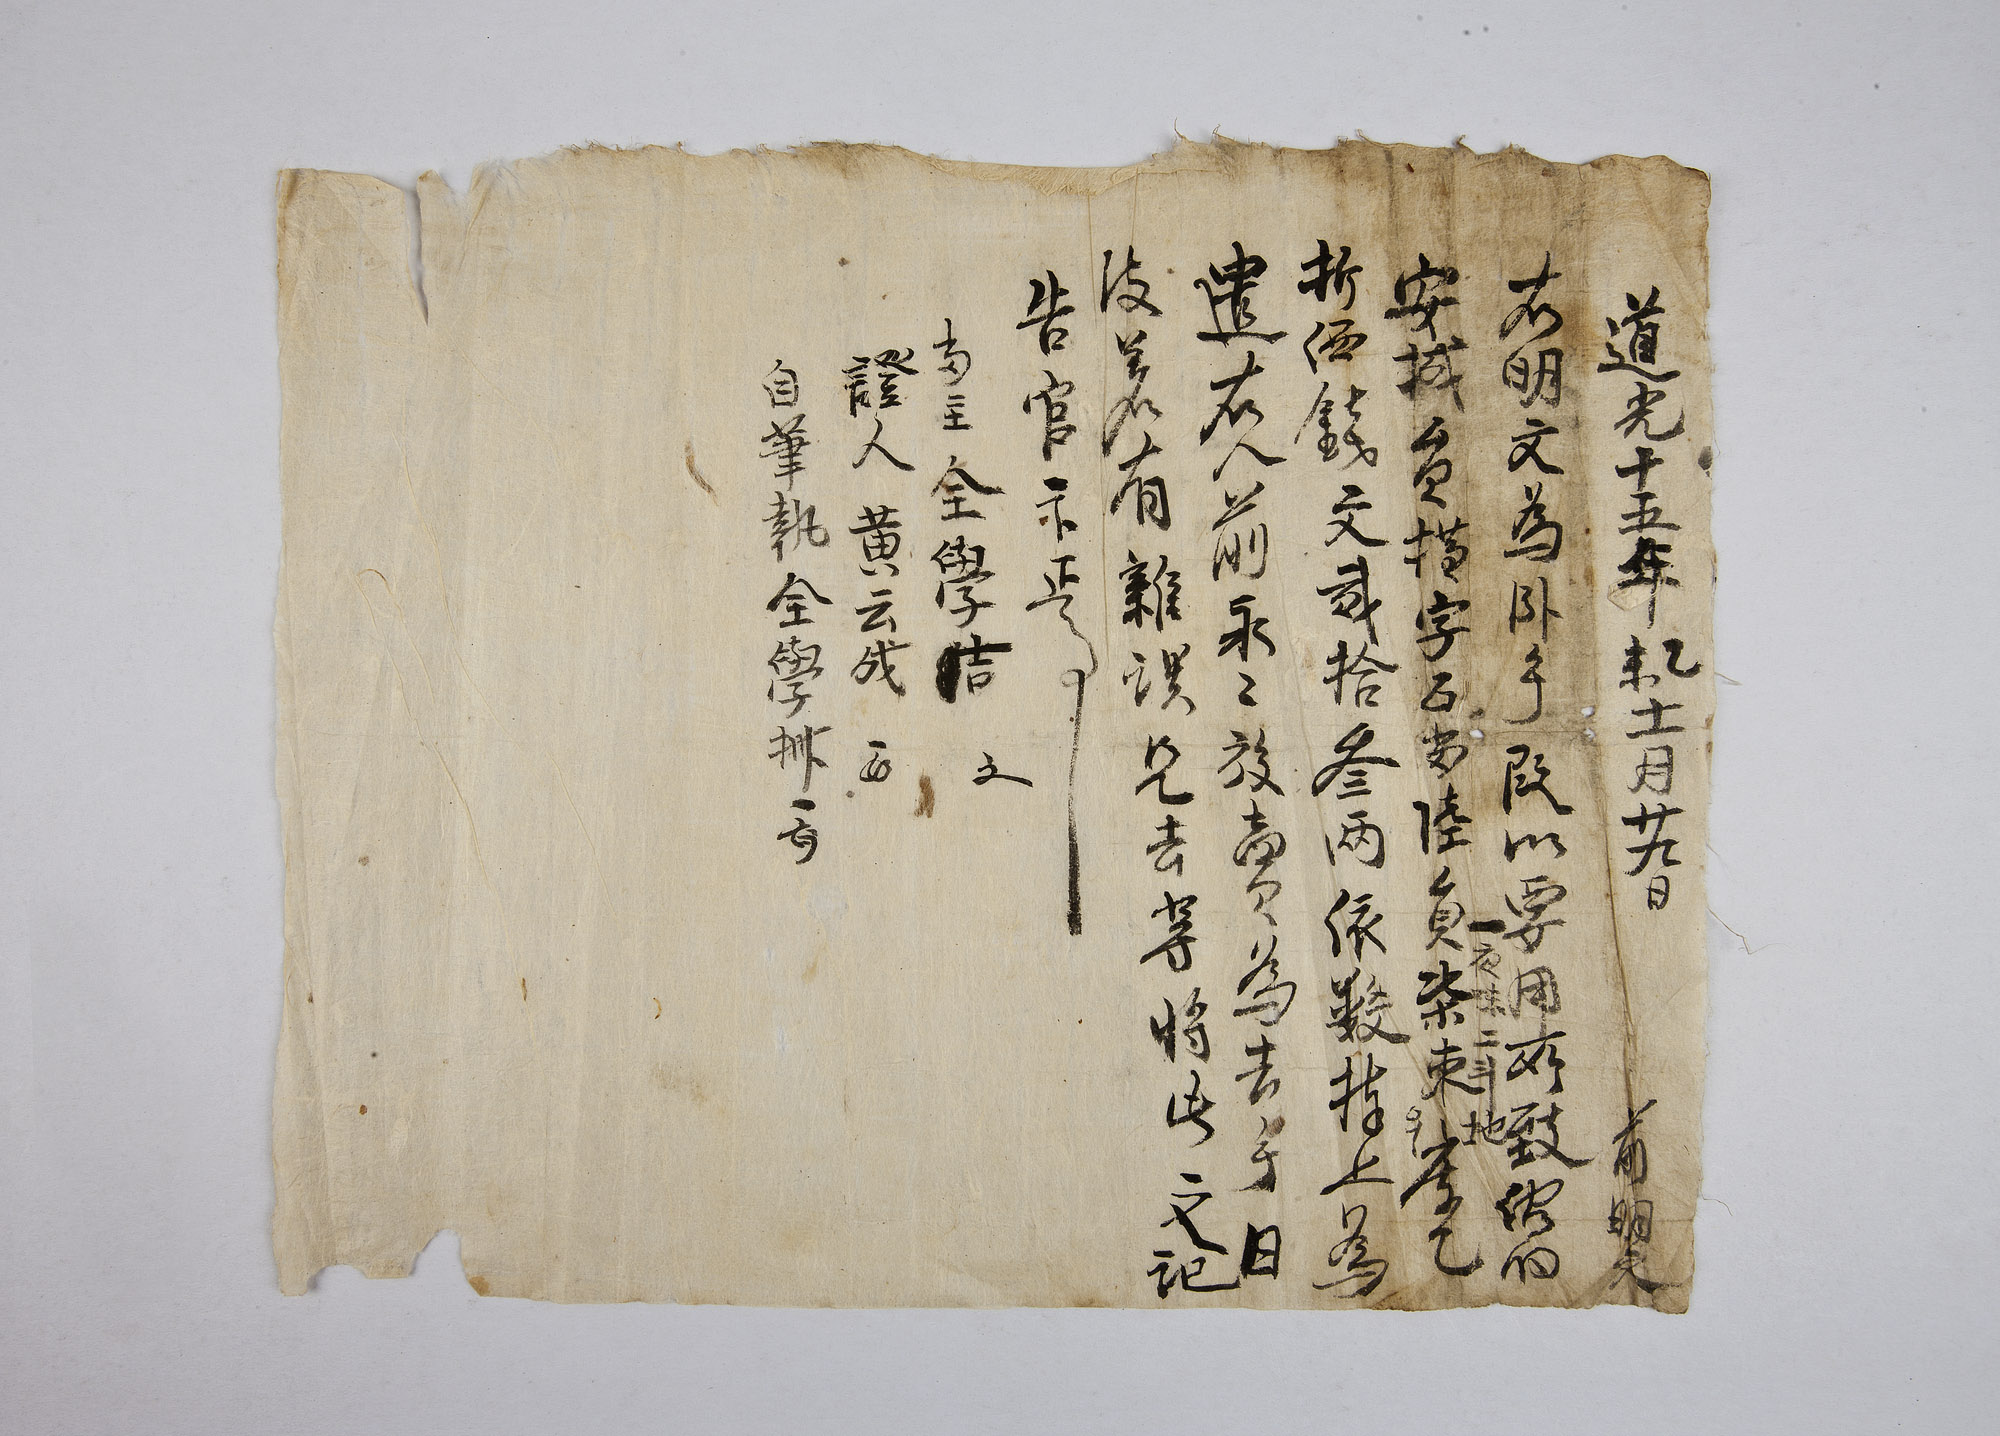 道光十五年乙未十二月廿九日 前明文
右明文爲臥乎段以要用所致
安城員 字 畓陸負柒束 庫乙
一夜味二斗地
折価錢文貳拾叁兩依數捧上爲
遣右人前永〻放賣爲去乎日
後若有雜談是去等將此文記
告官卞正事
畓主 全學喆
證人 黃云成
自筆執 全學